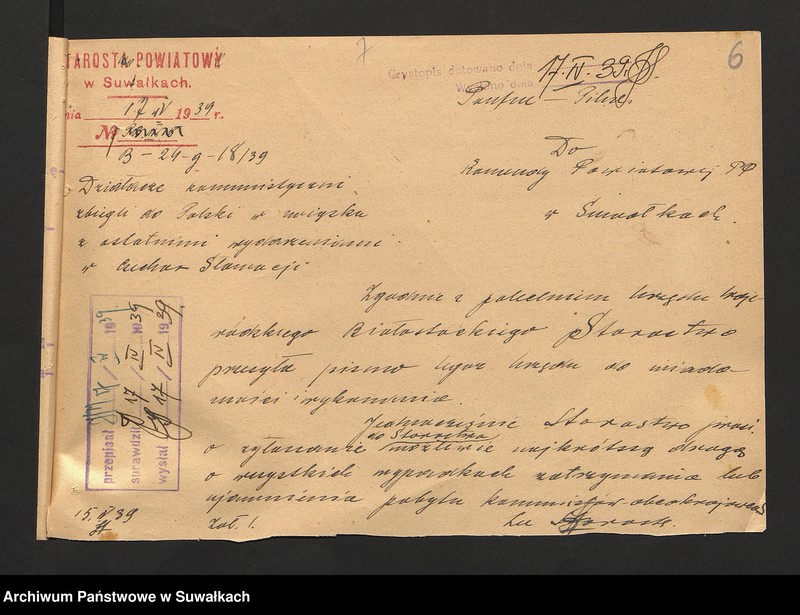 STAROSTA POWIATOWY
w Suwałkach.
dnia 17 IV 1939 r.
Nr
B-24-g-18/39
7
6
Czystopis datowano dnia 17.IV.39
Wysłano dnia
Poufne - Pilne.
Do
Komendy Powiatowej PP
w Suwałkach.
Działacze komunistyczni
zbiegli do Polski w związku
z ostatnimi wydarzeniami
w Czechosłowacji
Zgodnie z poleceniem Urzędu Woje-
wódzkiego Białostockiego Starostwo
przesyła pismo tegoż Urzędu do wiado-
mości i wykonania.
Jednocześnie Starostwo prosi
o zgłaszanie do Starostwa możliwie najkrótszą drogą
o wszystkich wypadkach zatrzymania lub
ujawnienia pobytu komunistów-obcokrajowców
Zał 1.
Za Starostę
przepisał 17/IV 1939
sprawdził 17/IV 1939
wysłał 17/IV 1939
15.IV 39
Archiwum Państwowe w Suwałkach